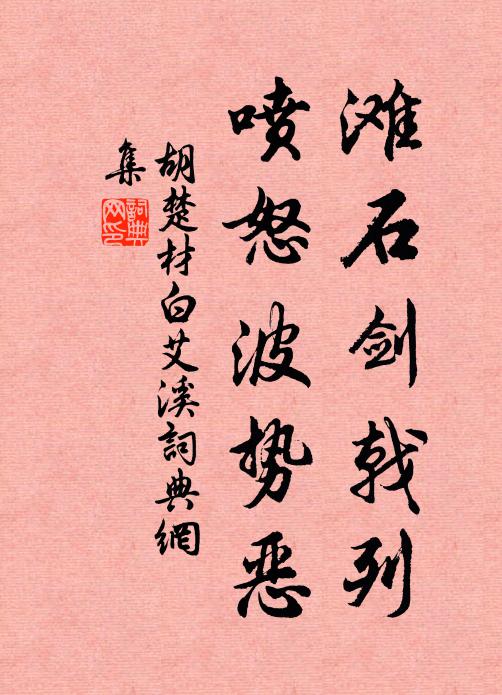 滩石剑戟列
喷怒波势恶
胡楚材白艾溪詞典網
集
詞典
网印